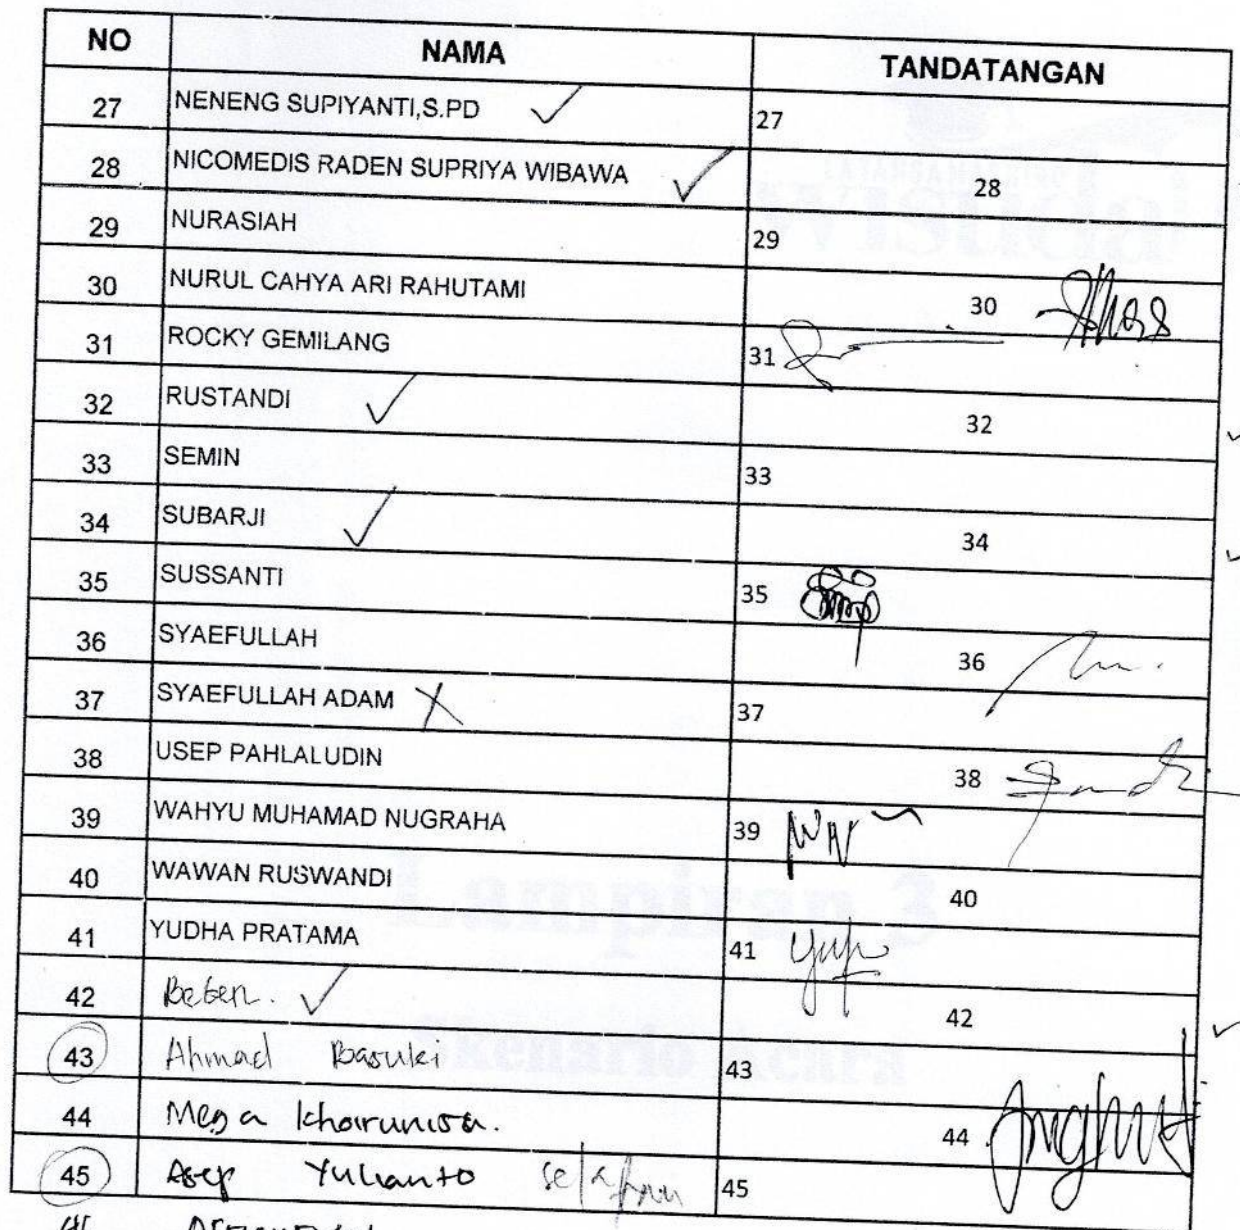 NO NAMA TANDATANGAN
27 NENENG SUPIYANTI,S.PD 27
28 NICOMEDIS RADEN SUPRIYA WIBAWA 28
29 NURASIAH 29
30 NURUL CAHYA ARI RAHUTAMI 30
31 ROCKY GEMILANG 31
32 RUSTANDI 32
33 SEMIN 33
34 SUBARJI 34
35 SUSSANTI 35
36 SYAEFULLAH 36
37 SYAEFULLAH ADAM 37
38 USEP PAHLALUDIN 38
39 WAHYU MUHAMAD NUGRAHA 39
40 WAWAN RUSWANDI 40
41 YUDHA PRATAMA 41
42 42
43 Ahmad Basuki 43
44 Mega Khairunisa. 44
45 Asep Yulianto 45